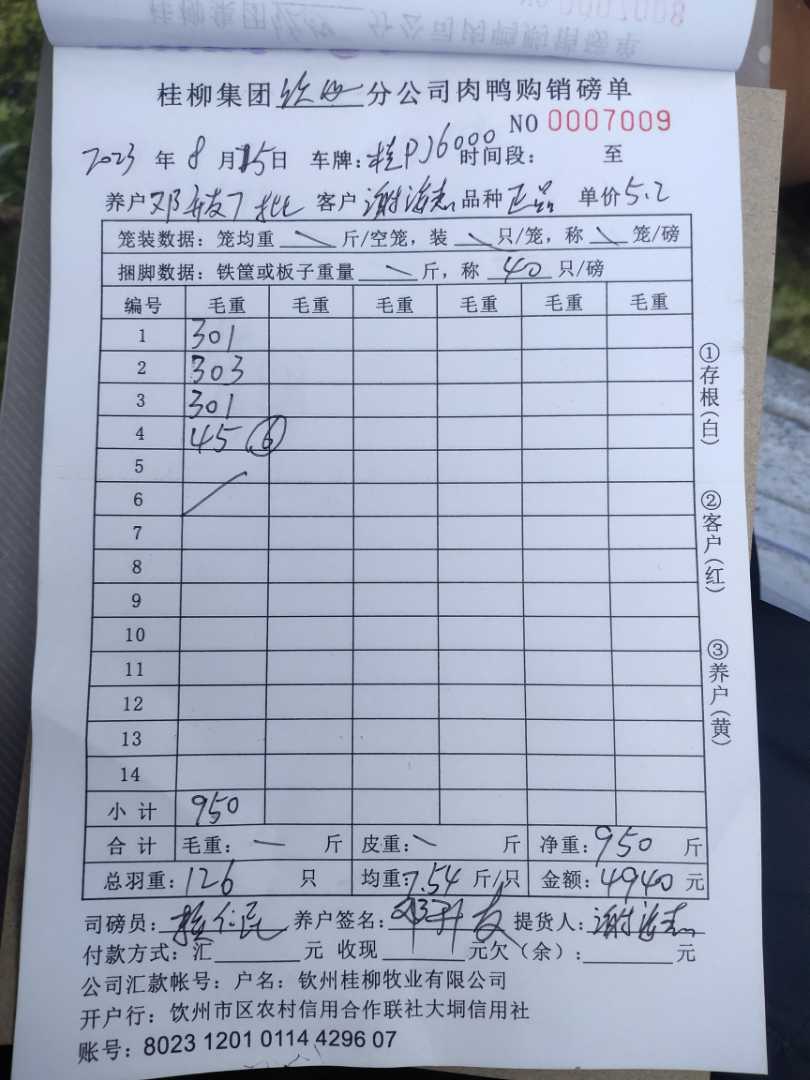 桂柳集团钦州分公司肉鸭购销磅单
NO 0007009
2023年8月15日 车牌:桂PJ6000时间段: 至
养户邓 批 客户谢海志品种正品 单价5.2
笼装数据:笼均重 \ 斤/空笼,装 \ 只/笼,称 \ 笼/磅
捆脚数据:铁筐或板子重量 \ 斤,称 40 只/磅
编号 毛重 毛重 毛重 毛重 毛重 毛重
1 301
2 303
3 301
4 45 ⑥
5
6
7
8
9
10
11
12
13
14
小计 950
合计 毛重: — 斤 皮重: \ 斤 净重:950 斤
总羽重:126 只 均重:7.54 斤/只 金额:4940 元
司磅员: 养户签名:邓 友 提货人:谢海志
付款方式:汇 元 收现 元欠(余): 元
公司汇款帐号:户名:钦州桂柳牧业有限公司
开户行:钦州市区农村信用合作联社大垌信用社
账号:8023 1201 0114 4296 07
①存根(白)
②客户(红)
③养户(黄)